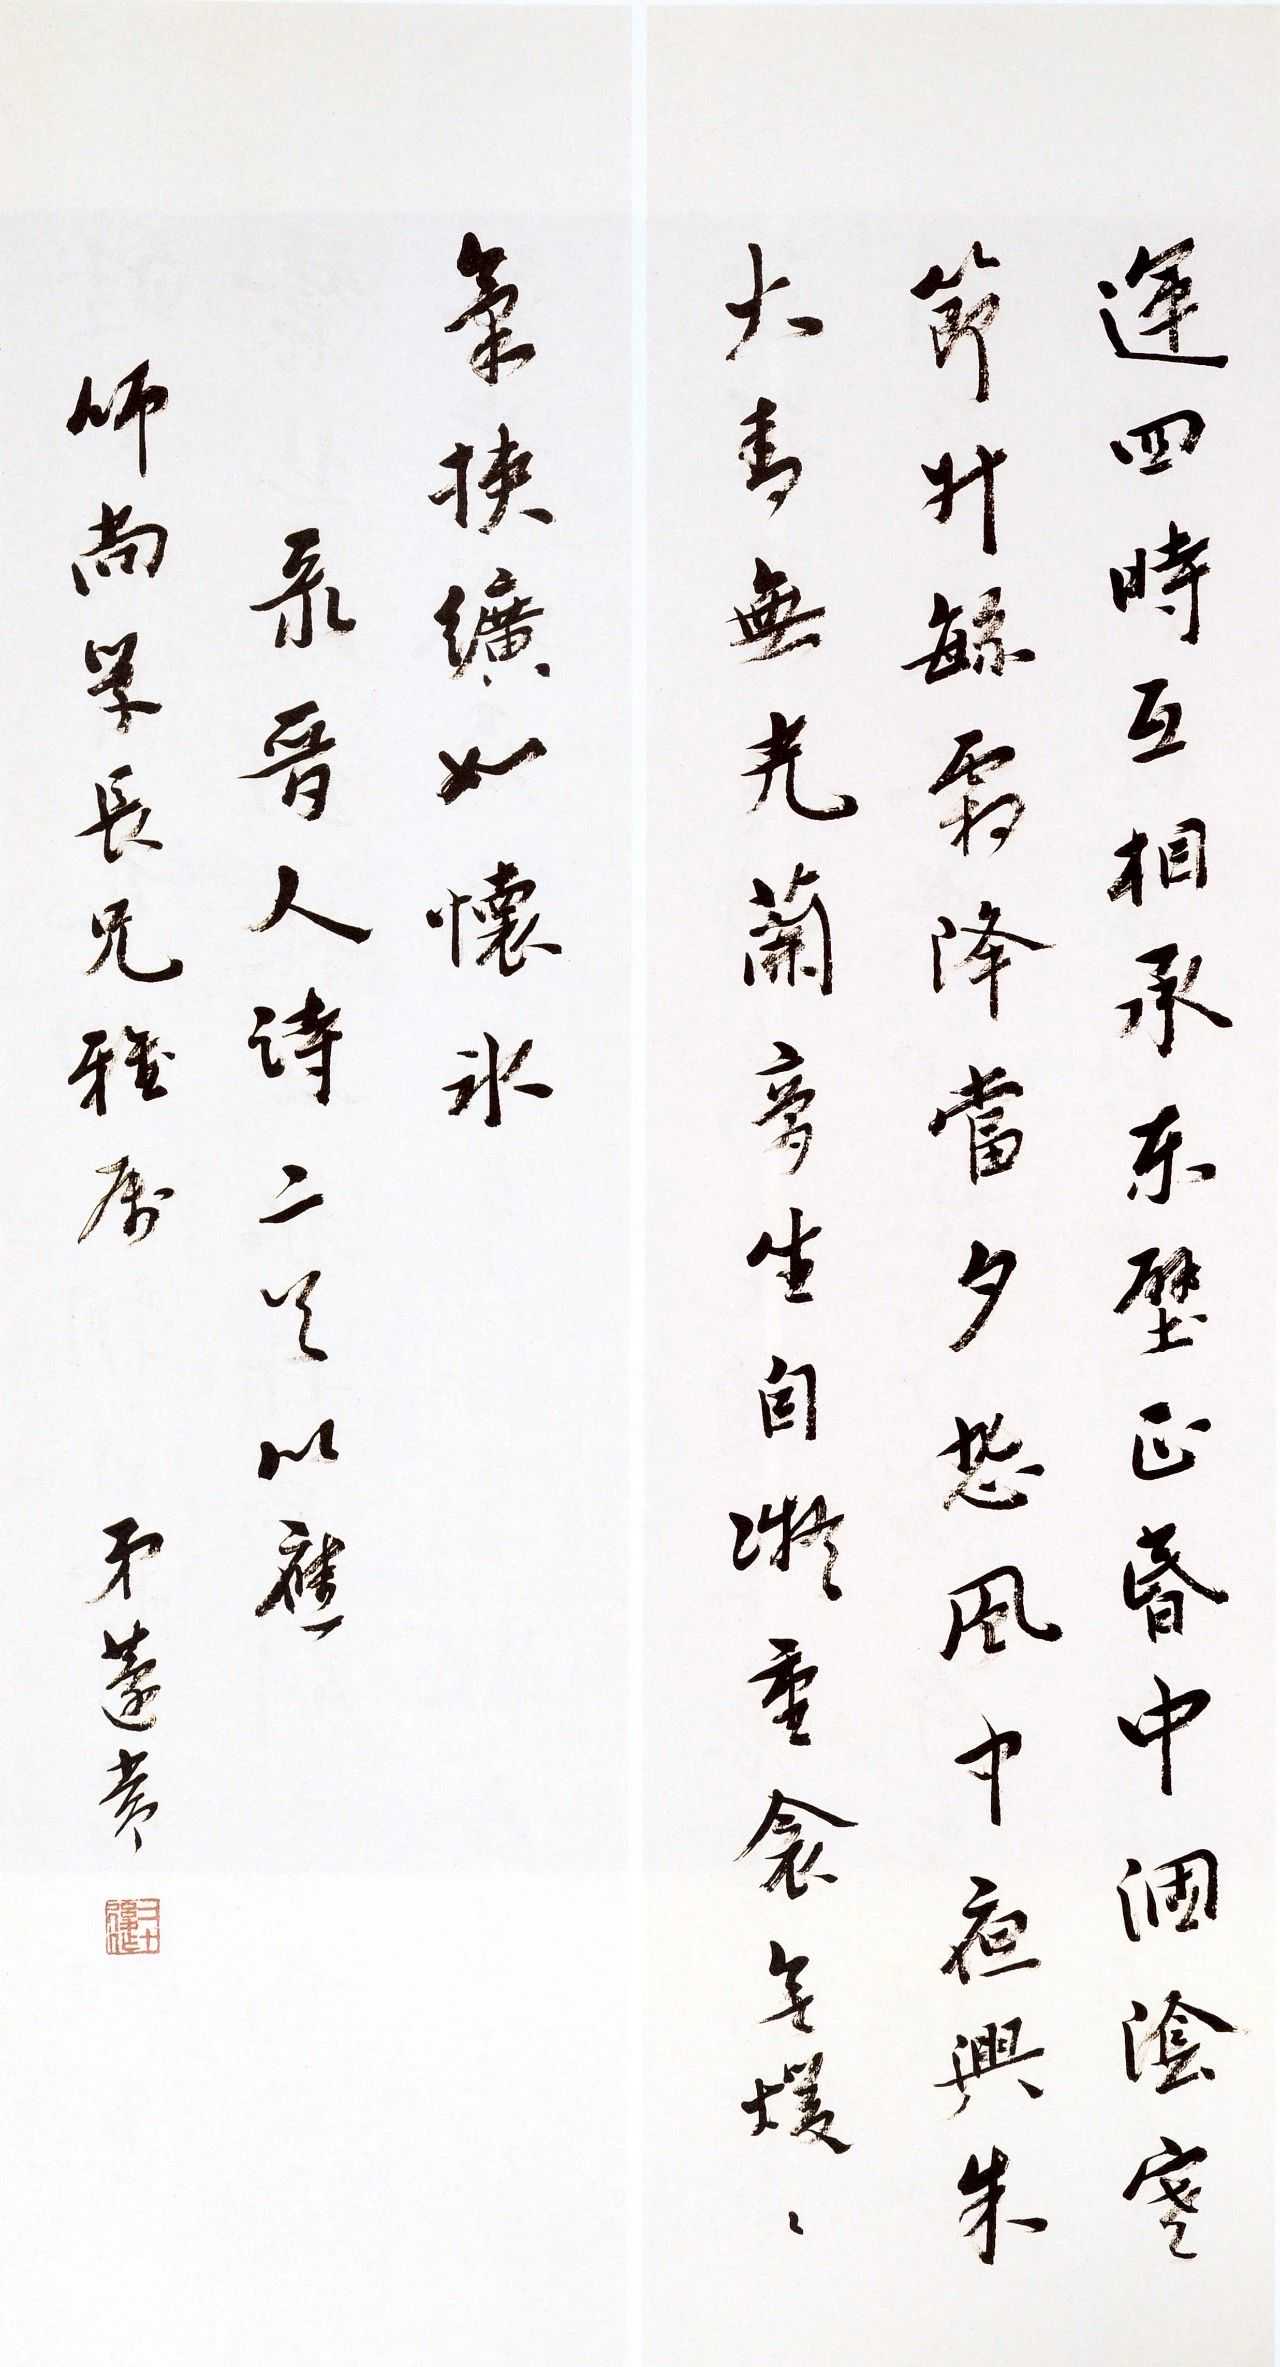 運四時互相承东壁正昏中涸陰寒
節升緐霜降當夕悲風中夜興朱
火青無光蘭膏坐自凝重衾无煖
氣挾纊如懷冰
录晉人詩二以應
師尚学長兄雅属 弟蘧常